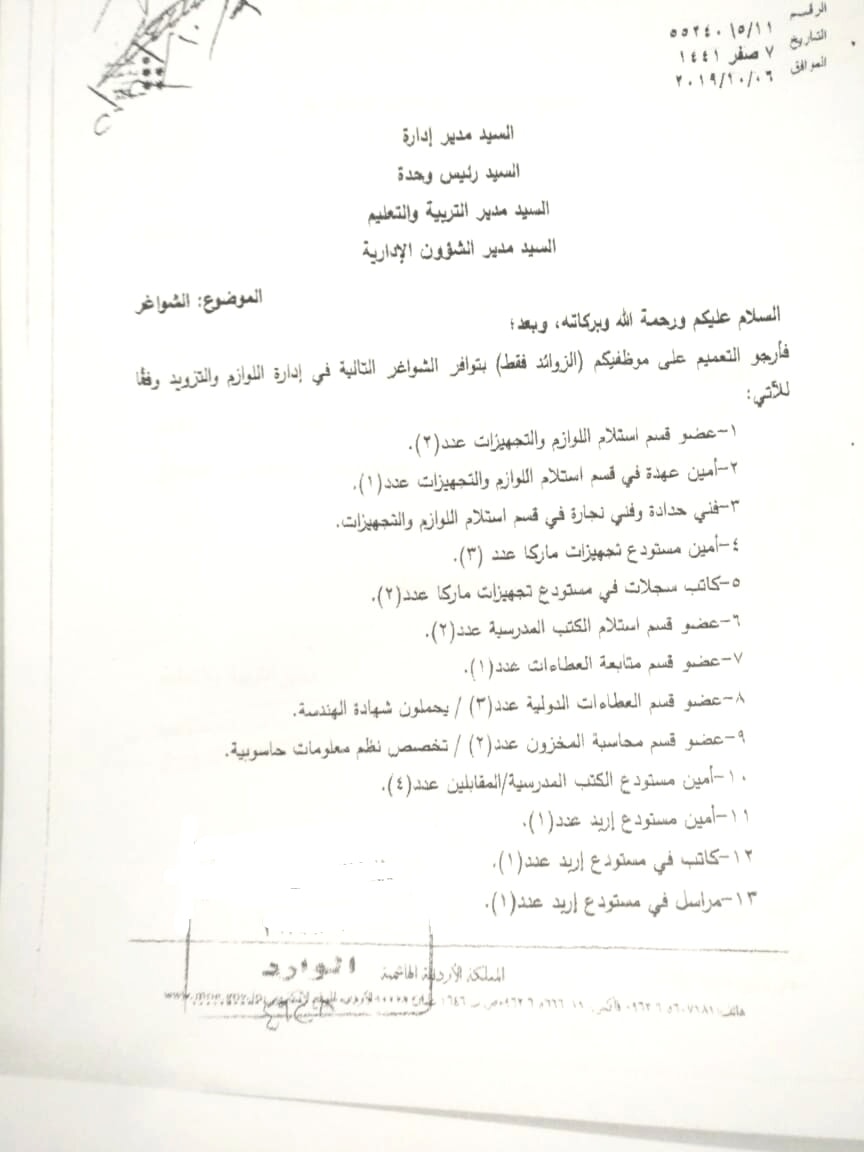 الرقم ٥٥٢٤٠/٥/١١
التاريخ ٧ صفر ١٤٤١
الموافق ٢٠١٩/١٠/٠٦
السيد مدير إدارة
السيد رئيس وحدة
السيد مدير التربية والتعليم
السيد مدير الشؤون الإدارية
الموضوع: الشواغر
السلام عليكم ورحمة الله وبركاته، وبعد؛
فأرجو التعميم على موظفيكم (الزوائد فقط) بتوافر الشواغر التالية في إدارة اللوازم والتزويد وفقًا
للآتي:
١-عضو قسم استلام اللوازم والتجهيزات عدد(٢).
٢-أمين عهدة في قسم استلام اللوازم والتجهيزات عدد(١).
٣-فني حدادة وفني نجارة في قسم استلام اللوازم والتجهيزات.
٤-أمين مستودع تجهيزات ماركا عدد (٣).
٥-كاتب سجلات في مستودع تجهيزات ماركا عدد(٢).
٦-عضو قسم استلام الكتب المدرسية عدد(٢).
٧-عضو قسم متابعة العطاءات عدد(١).
٨-عضو قسم العطاءات الدولية عدد(٣) / يحملون شهادة الهندسة.
٩-عضو قسم محاسبة المخزون عدد(٢) / تخصص نظم معلومات حاسوبية.
١٠-أمين مستودع الكتب المدرسية/المقابلين عدد(٤).
١١-أمين مستودع إربد عدد(١).
١٢-كاتب في مستودع إربد عدد(١).
١٣-مراسل في مستودع إربد عدد(١).
المملكة الأردنية الهاشمية
الوارد
هاتف: ٥٦٠٧١٨١ ٦ ٠٩٦٢ فاكس: www.moe.gov.jo